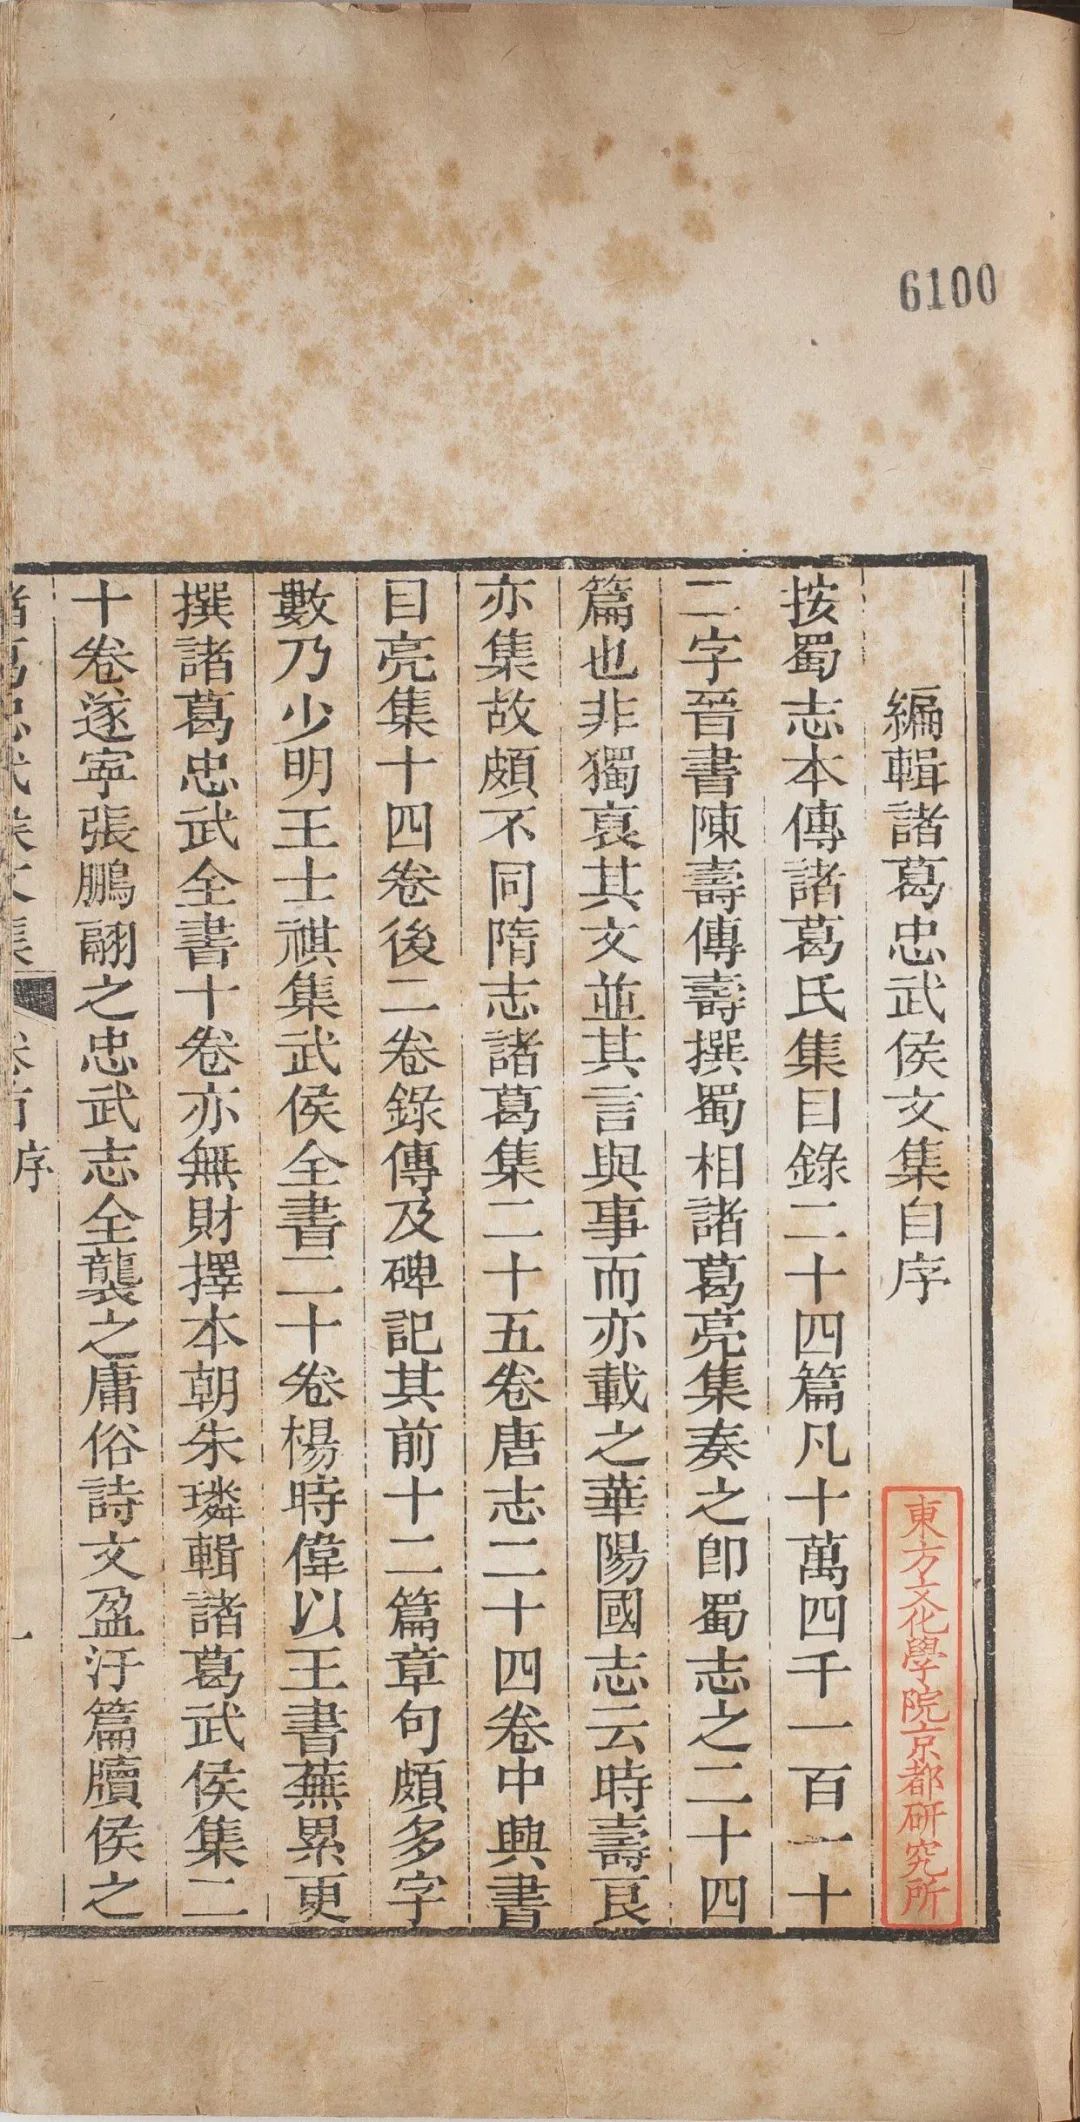 6100
編輯諸葛忠武侯文集自序
東方文化學院京都研究所
按蜀志本傳諸葛氏集目錄二十四篇凡十萬四千一百一十
二字晉書陳壽傳壽撰蜀相諸葛亮集奏之卽蜀志之二十四
篇也非獨裒其文並其言與事而亦載之華陽國志云時壽良
亦集故頗不同隋志諸葛集二十五卷唐志二十四卷中興書
目亮集十四卷後二卷錄傳及碑記其前十二篇章句頗多字
數乃少明王士祺集武侯全書二十卷楊時偉以王書蕪累更
撰諸葛忠武全書十卷亦無財擇本朝朱璘輯諸葛武侯集二
十卷遂寧張鵬翮之忠武志全襲之庸俗詩文盈汙篇牘侯之
諸葛忠武侯文集 卷首 序 一